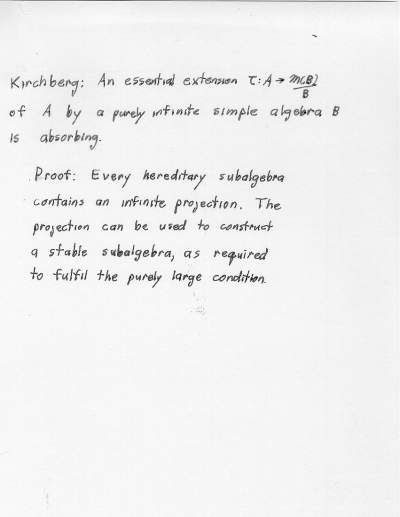 Kirchberg: An essential extension τ: A → M(B)/B
of A by a purely infinite simple algebra B
is absorbing.
Proof: Every hereditary subalgebra
contains an infinite projection. The
projection can be used to construct
a stable subalgebra, as required
to fulfil the purely large condition.